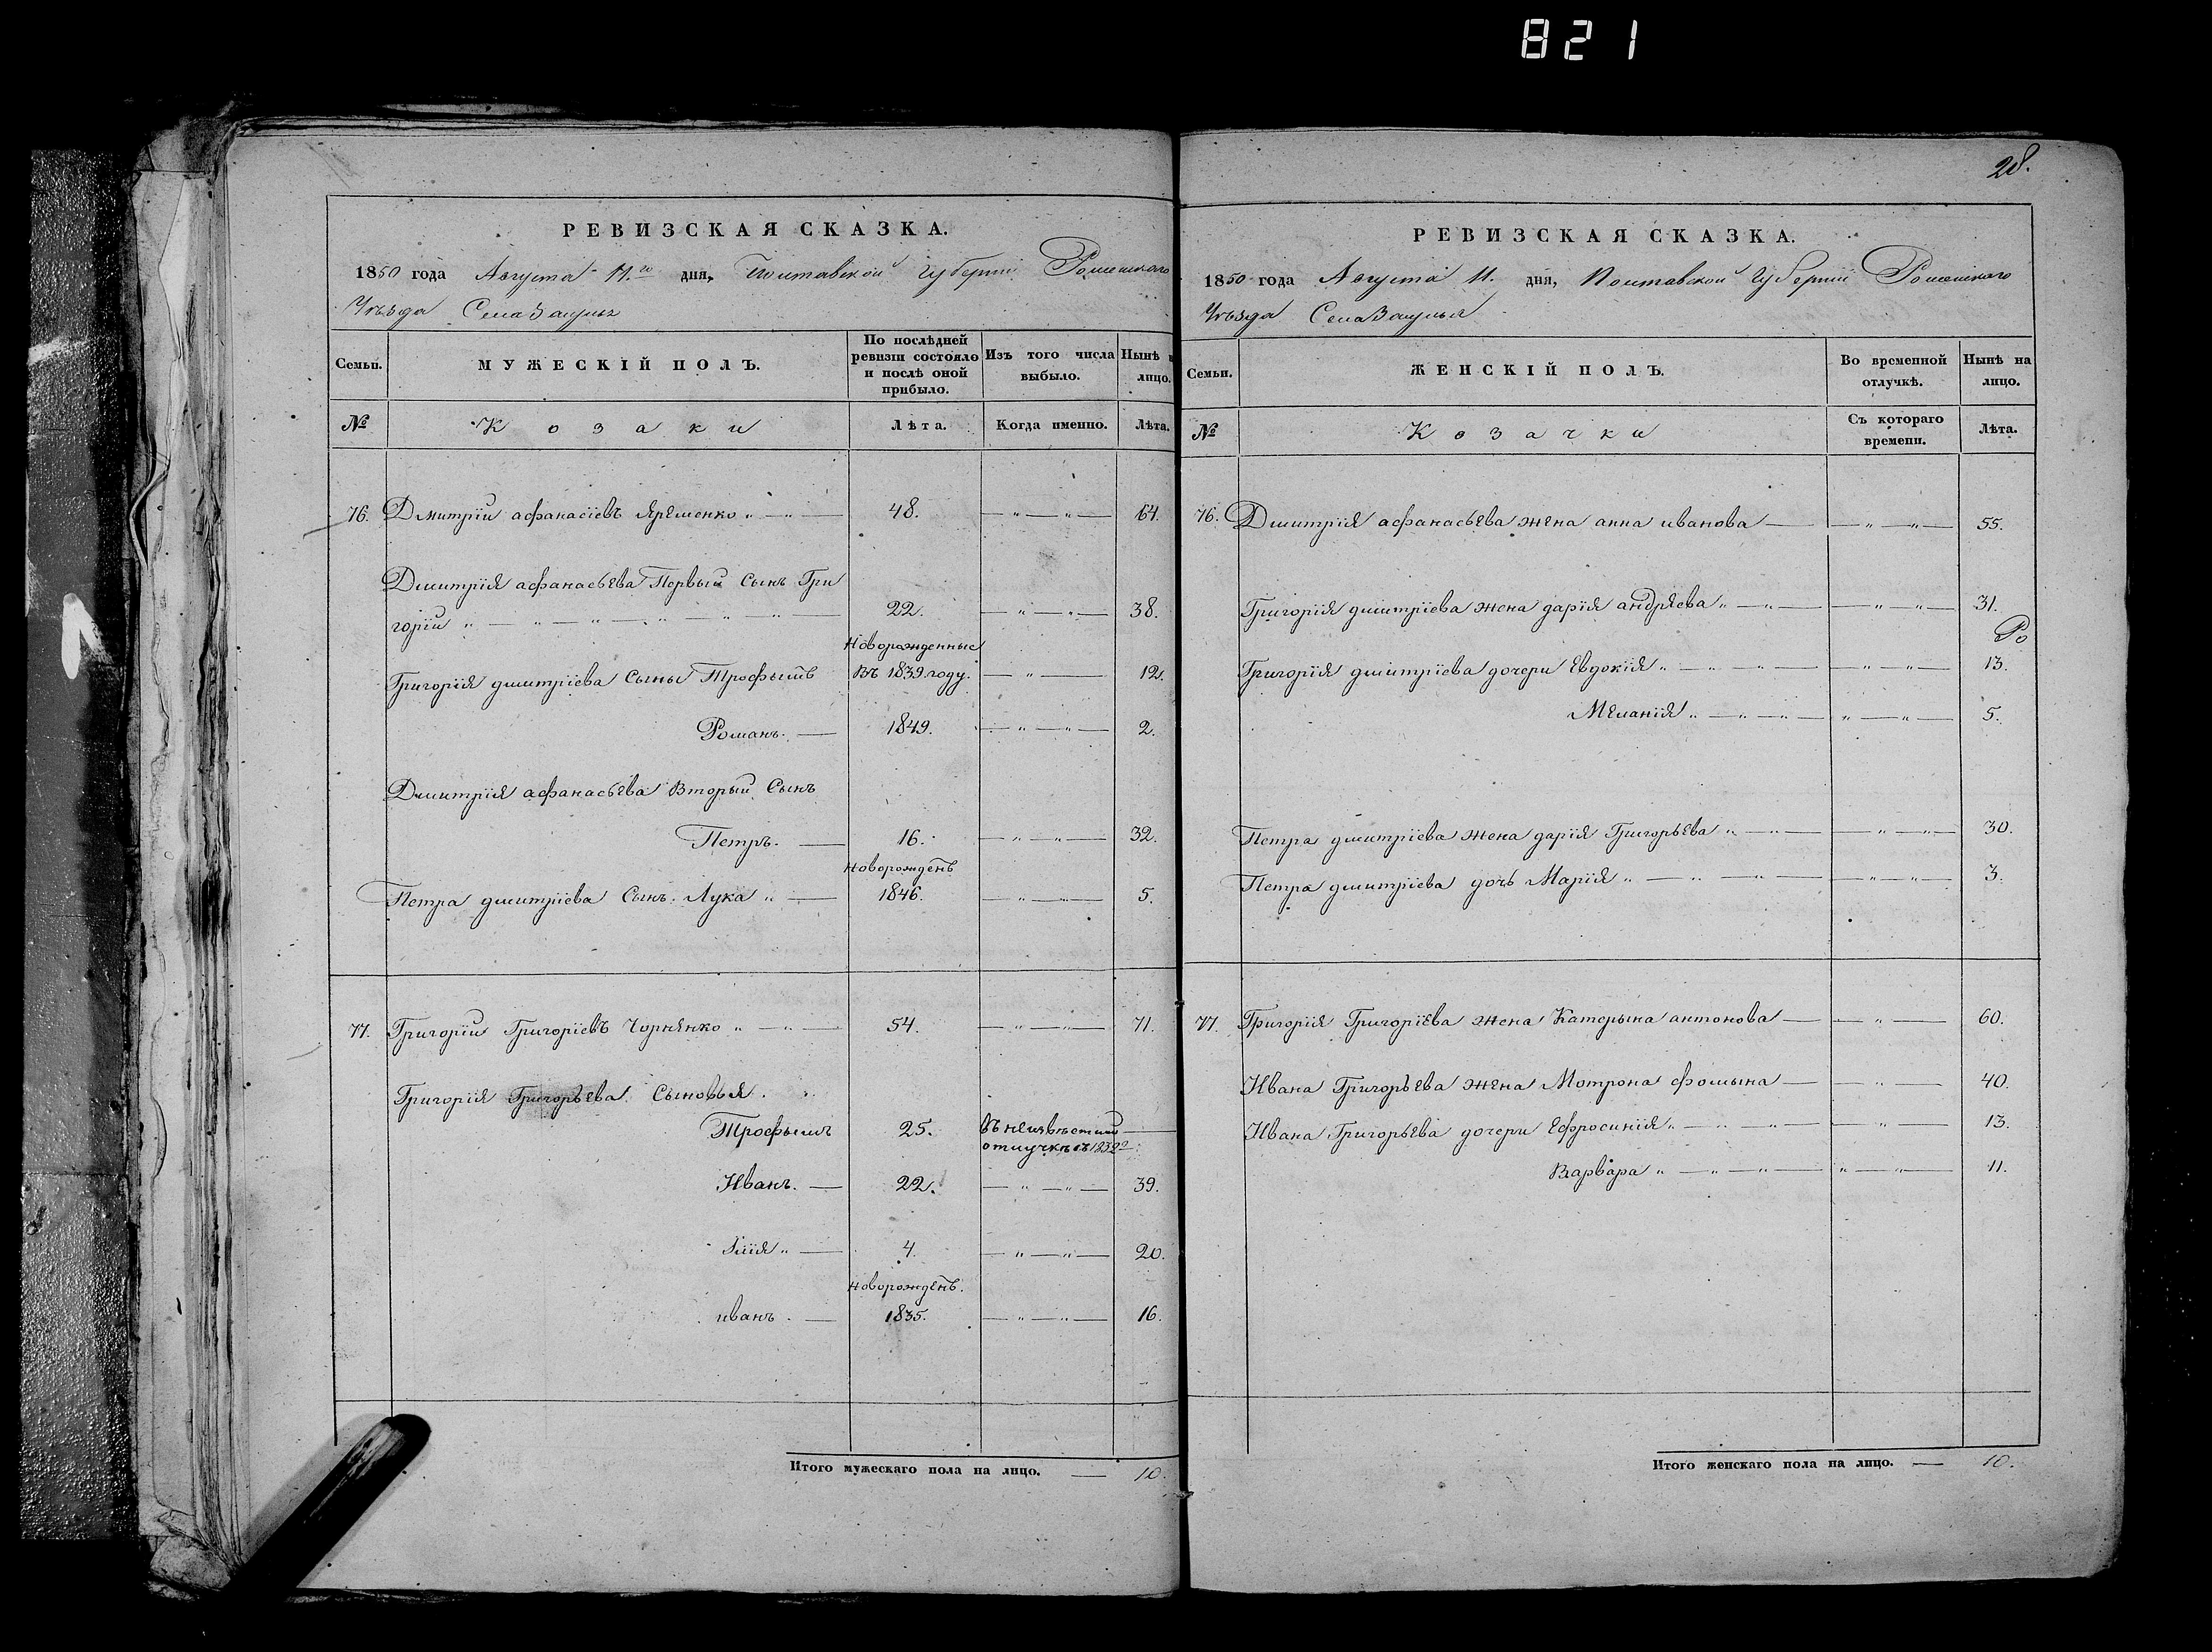 821
28.
РЕВИЗСКАЯ СКАЗКА.
1850 года Августа 11.го дня, Полтавской губернїи Роменскаго
Уѣзда Села Засулья
Семьи. МУЖЕСКІЙ ПОЛЪ. По послѣдней ревизіи состояло и послѣ оной прибыло. Изъ того числа выбыло. Нынѣ лицо.
№ Козаки Лѣта. Когда именно. Лѣта.
76. Дмитрїй афанасїевъ Яременко 48. 64.
Дмитрїя афанасьева Первый Сынъ Гри
горїй 22. 38.
Новорожденные
Григорїя дмитрїева Сыны Трофымъ Въ 1839 году. 12.
Романъ. 1849. 2.
Дмитрїя афанасьева Вторый Сынъ
Петръ. 16. 32.
Новорожденъ
Петра дмитрїева Сынъ Лука 1846. 5.
77. Григорїй Григорїевъ Чорненко 54. 71.
Григорїя Григорьева Сыновья.
Трофымъ 25. Въ неизвѣстной
отлучкѣ съ 1832го
Иванъ. 22. 39.
Илїя 4. 20.
Новорожденъ.
иванъ 1835. 16.
Итого мужескаго пола на лицо. 10.
РЕВИЗСКАЯ СКАЗКА.
1850 года Августа 11. дня, Полтавской Губернїи Роменскаго
Уѣзда Села Засулья
Семьи. ЖЕНСКІЙ ПОЛЪ. Во временной отлучкѣ. Нынѣ на лицо.
№ Козачки Съ котораго времени. Лѣта.
76. Дмитрїя афанасьева жена анна иванова 55.
Григорїя дмитрїева жена дарїя андрѣева 31.
Ро
Григорїя дмитрїева дочери Евдокїя 13.
Меланїя 5.
Петра дмитрїева жена дарїя Григорьева 30.
Петра дмитрїева дочь Марїя 3.
77. Григорїя Григорїева жена Катерына антонова 60.
Ивана Григорьева жена Мотрона фомына 40.
Ивана Григорьева дочери Ефросинїя 13.
Варвара 11.
Итого женскаго пола на лицо. 10.